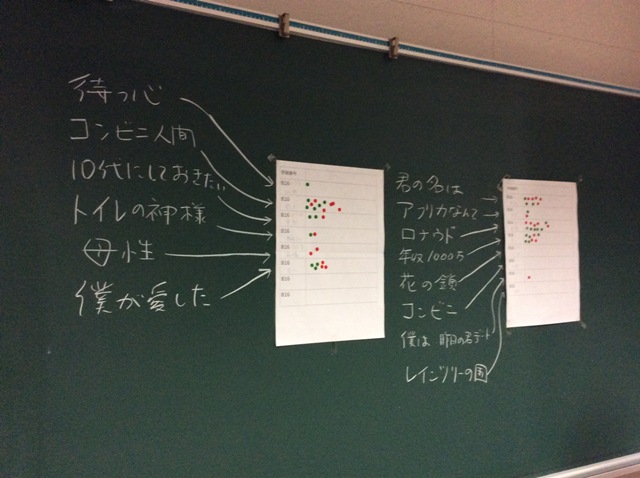 待つ心
コンビニ人間
10代にしておきたい
トイレの神様
母性
僕が愛した
君の名は
アフリカなんて
ロナウド
年収1000万
花の鎖
コンビニ
僕は明日の君デート
レインツリーの国